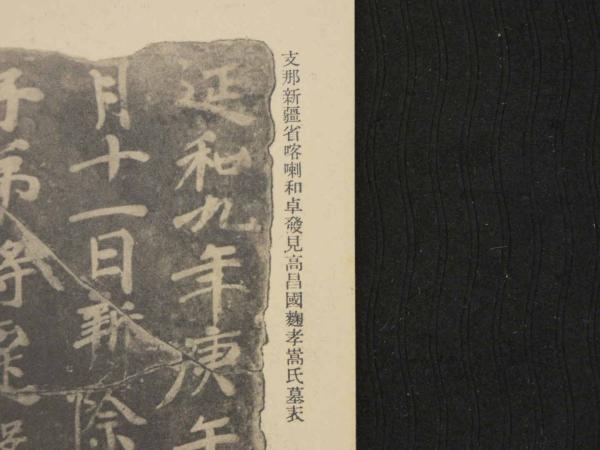 支那新疆省喀喇和卓發見高昌國麴孝嵩氏墓表
延和九年庚午
月十一日新除
子弟將